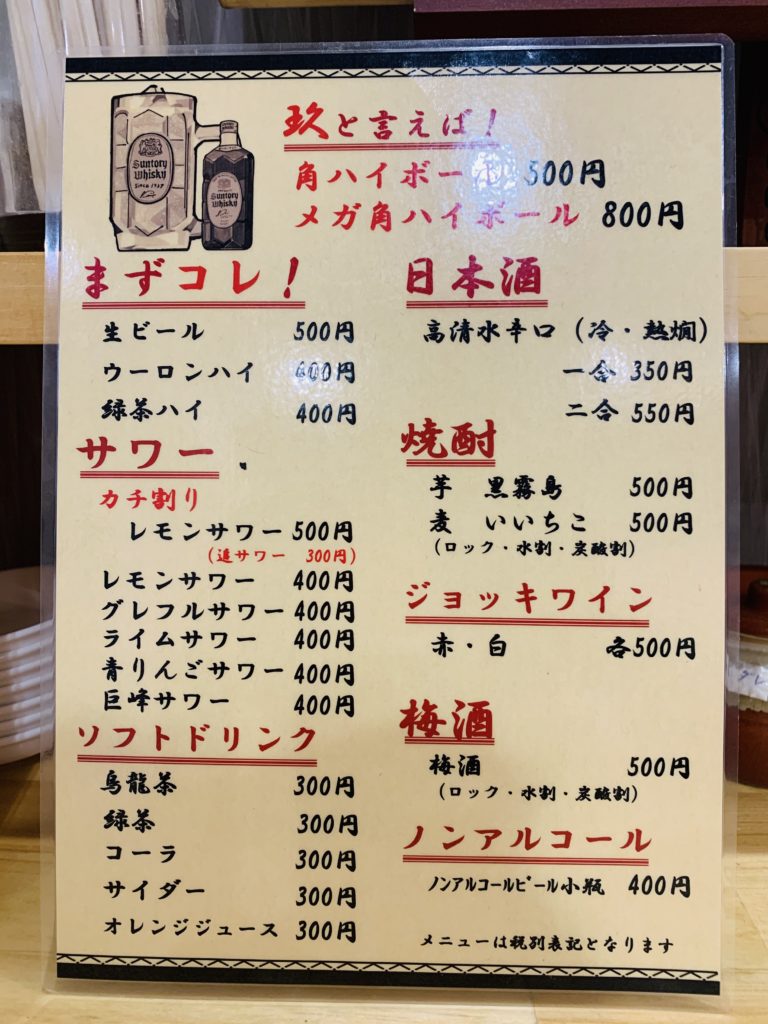 Suntory
Whisky
SINCE 1937
Suntory
Whisky
玖と言えば！
角ハイボール 500円
メガ角ハイボール 800円
まずコレ！
生ビール 500円
ウーロンハイ 400円
緑茶ハイ 400円
サワー
カチ割り
レモンサワー 500円
（追サワー 300円）
レモンサワー 400円
グレフルサワー 400円
ライムサワー 400円
青りんごサワー 400円
巨峰サワー 400円
ソフトドリンク
烏龍茶 300円
緑茶 300円
コーラ 300円
サイダー 300円
オレンジジュース 300円
日本酒
高清水辛口（冷・熱燗）
一合 350円
二合 550円
焼酎
芋 黒霧島 500円
麦 いいちこ 500円
（ロック・水割・炭酸割）
ジョッキワイン
赤・白 各500円
梅酒
梅酒 500円
（ロック・水割・炭酸割）
ノンアルコール
ノンアルコールビール小瓶 400円
メニューは税別表記となります